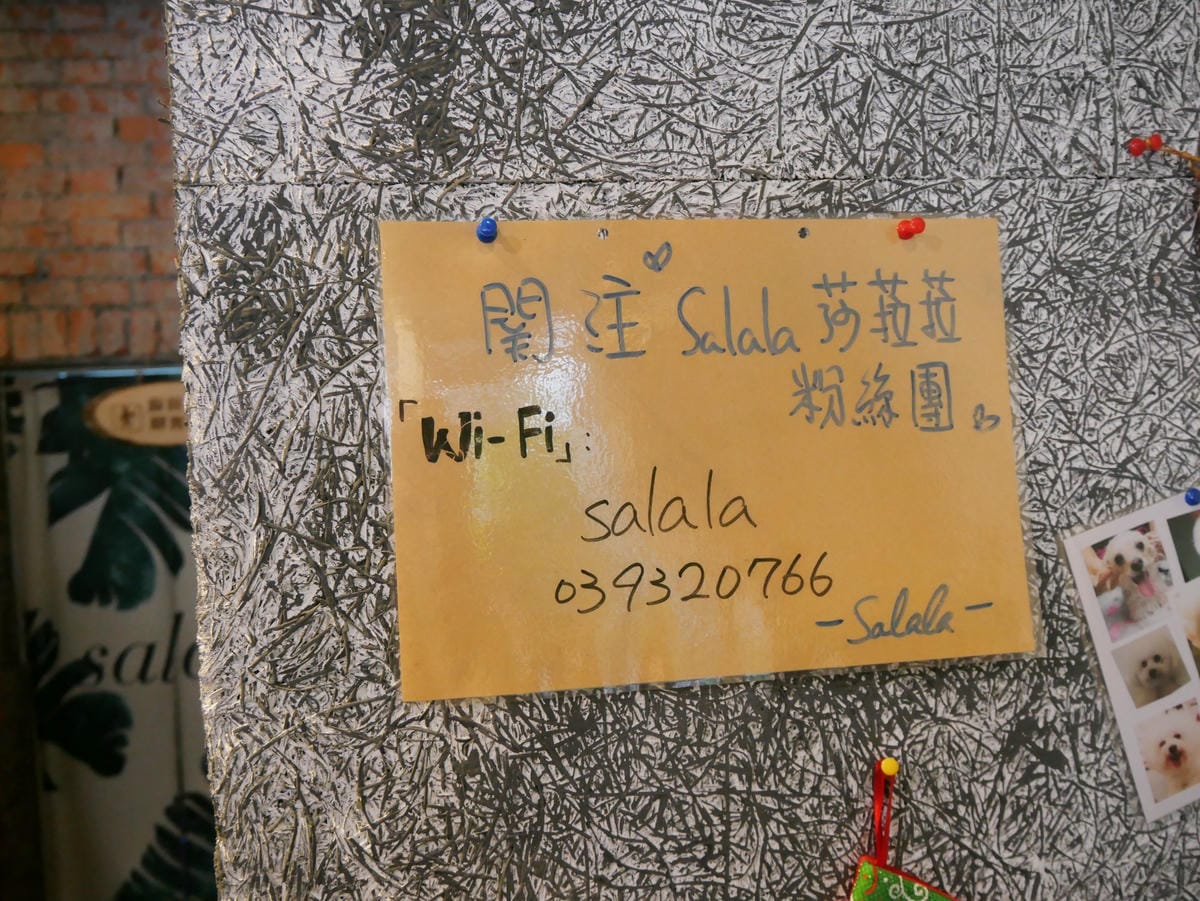 關注 Salala 莎菈菈
粉絲團
「Wi-Fi」:
salala
039320766
-Salala-
sala